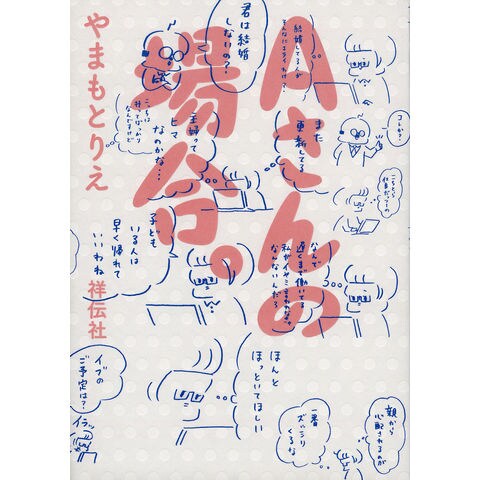 Aさんの
場合。
やまもとりえ
祥伝社
結婚してる人が
そんなにエライわけ?
君は結婚
しないの?
また
更新してる
主婦って
ヒマ
なのかな…
コレか?
こちとら
仕事だっつーの
なんで
遅くまで働いてる
私がイヤミ言われなきゃ
なんないんだろ
子ども
いる人は
早く帰れて
いいわね
ほんと
ほっといてほしい
イブの
ご予定は?
イラッ
一番
ズッシリ
くるな
親から
心配されるのが